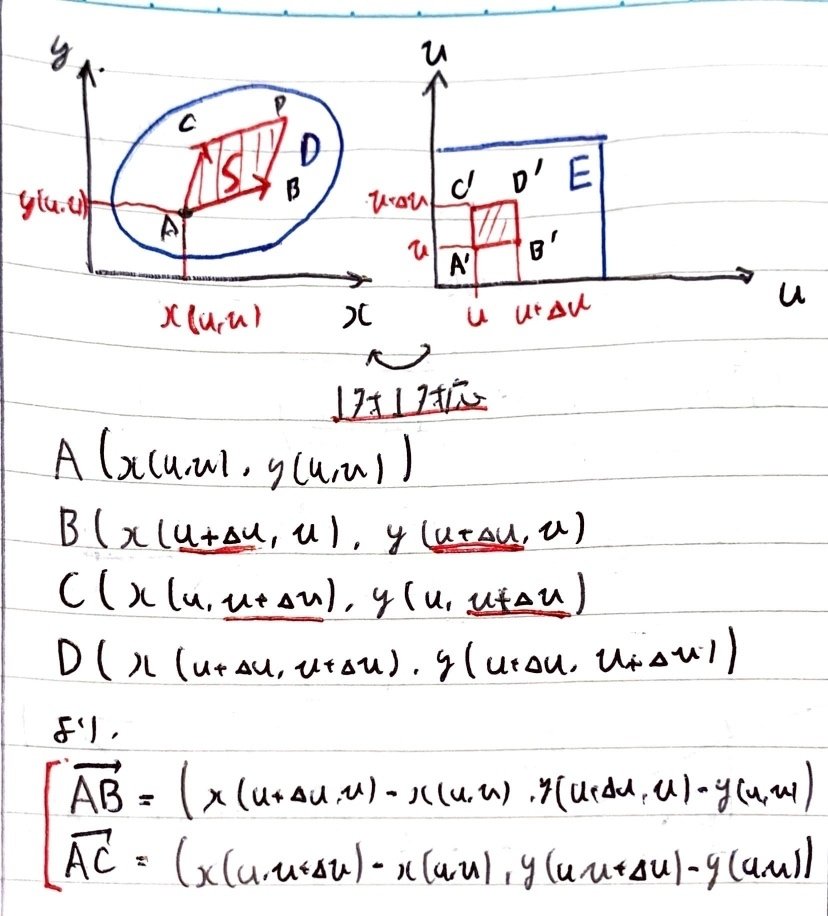 y
C D
S D
y(u,v) B
A
x(u,v) x
v
C' D' E
v+Δv
v
A' B'
u u+Δu
u
1対1対応
A(x(u,v), y(u,v))
B(x(u+Δu, v), y(u+Δu, v)
C(x(u, v+Δv), y(u, v+Δv)
D(x(u+Δu, v+Δv), y(u+Δu, v+Δv))
より,
AB = (x(u+Δu,v)-x(u,v), y(u+Δu,v)-y(u,v))
AC = (x(u,v+Δv)-x(u,v), y(u,v+Δv)-y(u,v))